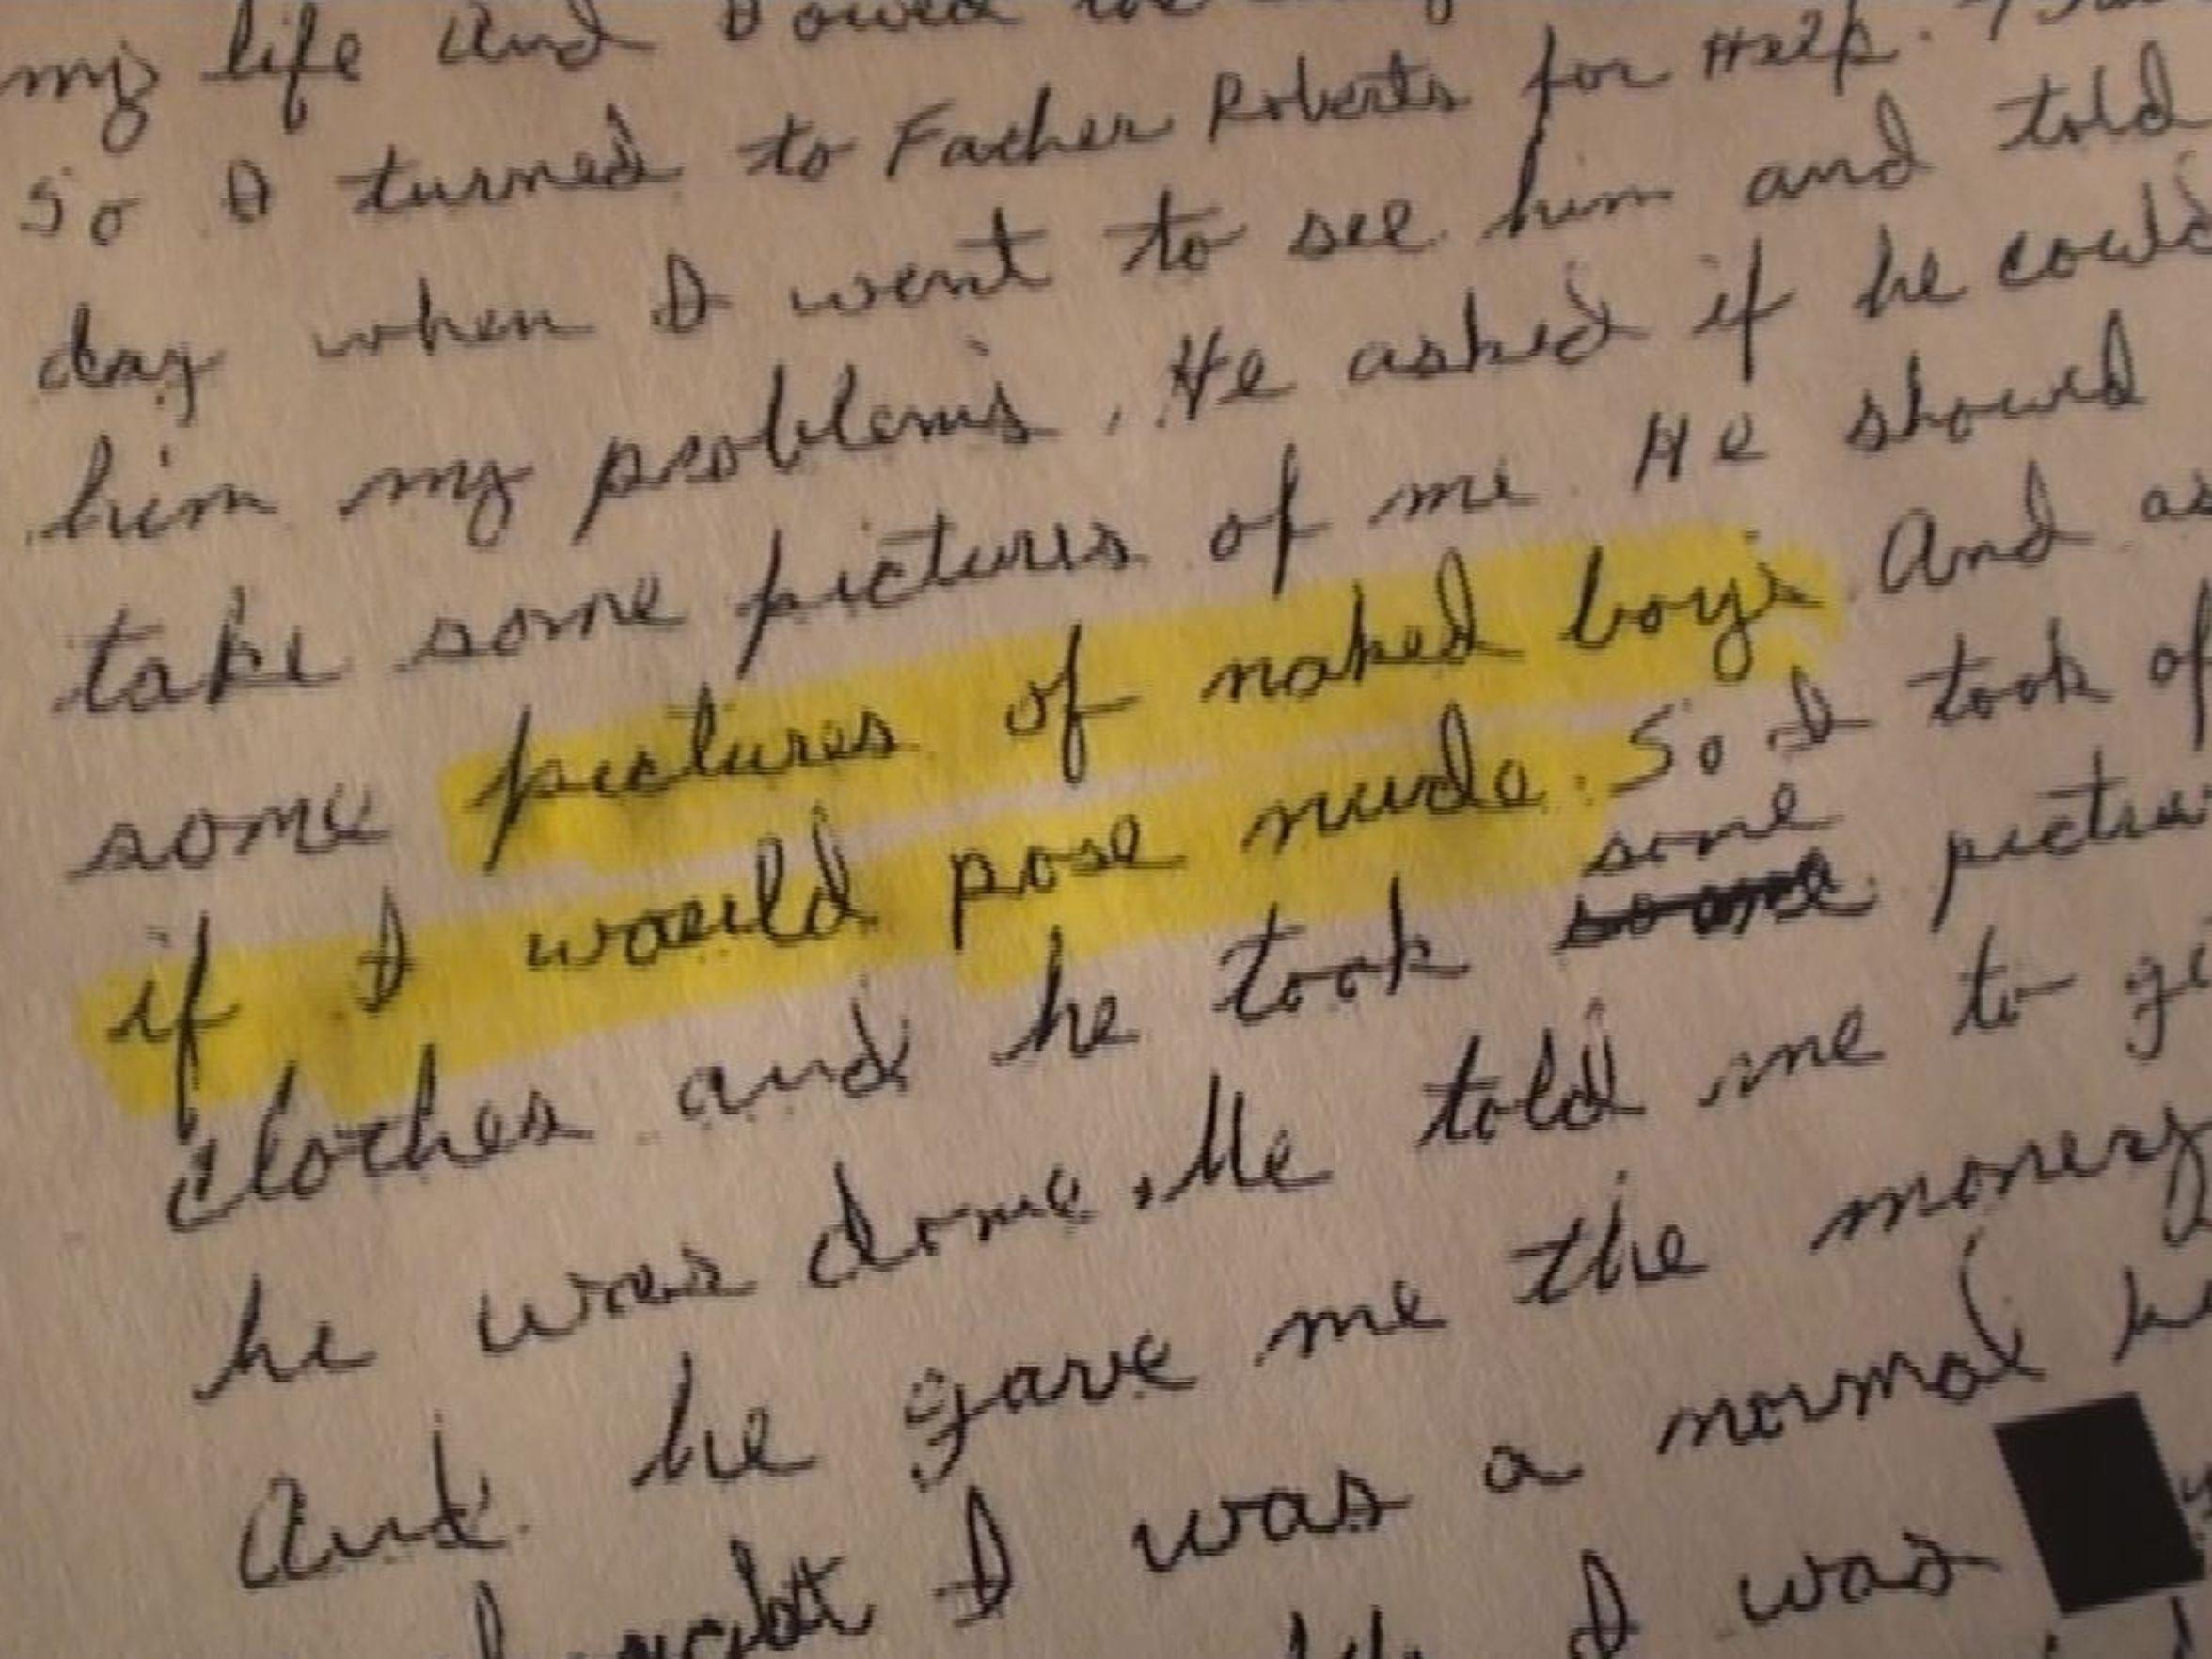 my life and
So I turned to Father Roberts for Help.
day when I went to see him and told
him my problems. He asked if he could
take some pictures of me. He showed
some pictures of naked boys. And as
if I would pose nude. So I took of
some
clothes and he took some pictur
he was done. He told me to
And he gave me the money
I was a normal
I was